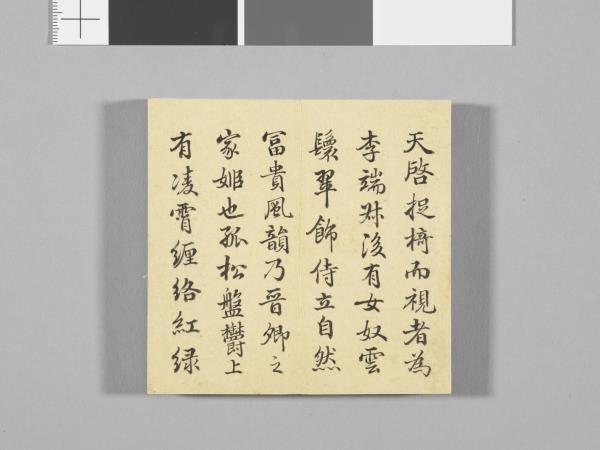 天啓捉椅而視者為
李端叔後有女奴雲
鬟翠飾侍立自然
冨貴風韻乃晉卿之
家姬也孤松盤欝上
有凌霄纏絡紅緑